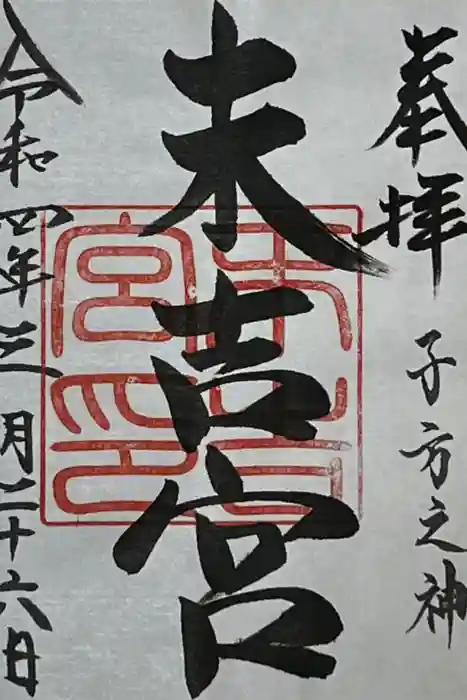 奉拝 子方之神
末吉宮
令和四年三月二十六日
末吉宮印